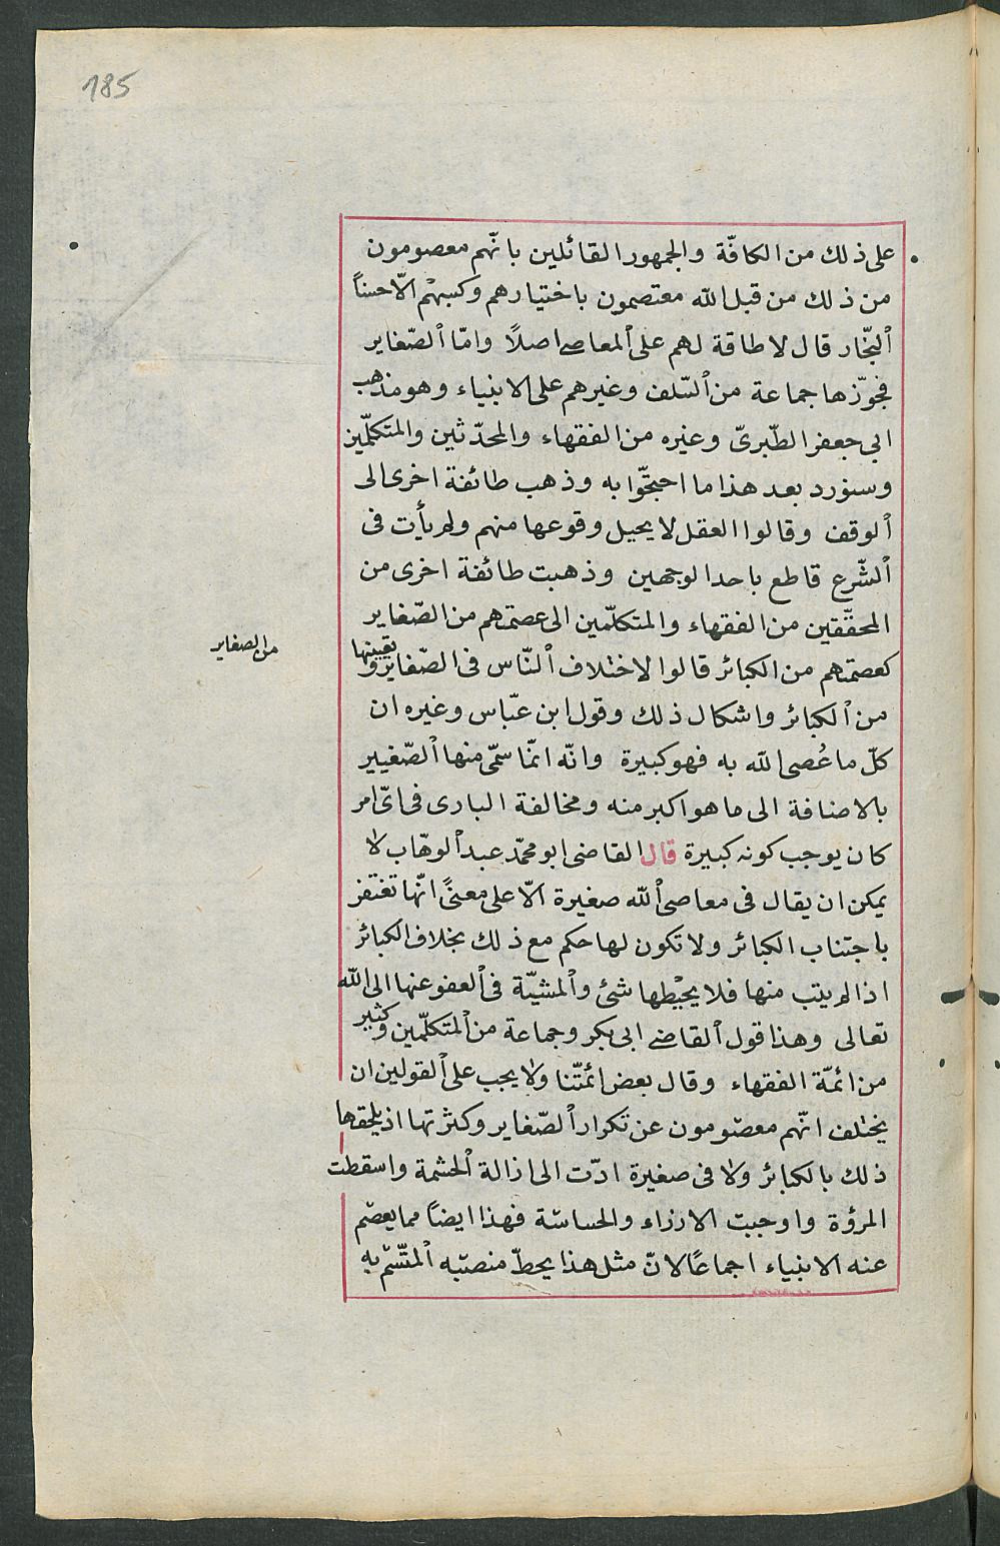 185
على ذلك من الكافّة والجمهور القائلين بانّهم معصومون
من ذلك من قبل الله معتصمون باختيارهم وكسبهم الّا حسناً
ٱلنجّار قال لا طاقة لهم على ٱلمعاصى اصلاً وامّا ٱلصّغاير
فجوّزها جماعة من ٱلسّلف وغيرهم على الانبياء وهو مذهب
ابى جعفر الطّبرىّ وغيره من الفقهاء والمحدّثين والمتكلّمين
وسنورد بعد هذا ما احتجّوا به وذهب طائفة اخرى الى
ٱلوقف وقالوا العقل لا يحيل وقوعها منهم ولم يأت فى
ٱلشّرع قاطع باحد الوجهين وذهبت طائفة اخرى من
المحقّقين من الفقهاء والمتكلّمين الى عصمتهم من الصّغاير
كعصمتهم من الكبائر قالوا لاختلاف ٱلنّاس فى الصّغاير وتعيينها
من الصغاير
من ٱلكبائر واشكال ذلك وقول ابن عبّاس وغيره ان
كلّ ما عُصى الله به فهو كبيرة وانّه انّما سمّى منها ٱلصّغيير
بالاضافة الى ما هو اكبر منه ومخالفة البارى فى اىّ امر
كان يوجب كونه كبيرة قال القاضى ابو محمّد عبد ٱلوهّاب لا
يمكن ان يقال فى معاصى ٱلله صغيرة الّا على معنىً انّها تغتفر
باجتناب الكبائر ولا تكون لها حكم مع ذلك بخلاف الكبائر
اذا لم يتب منها فلا يحبطها شئ وٱلمشيّة فى ٱلعفو عنها الى الله
تعالى وهذا قول ٱلقاضى ابى بكر وجماعة من ٱلمتكلّمين وكثير
من ائمّة الفقهاء وقال بعض ائمّتنا ولا يجب على ٱلقولين ان
يختلف انّهم معصومون عن تكرار ٱلصّغاير وكثرتها اذ يلحقها
ذلك بالكبائر ولا فى صغيرة ادّت الى ازالة ٱلحشمة واسقطت
المرؤة واوجبت الازراء والخساسة فهذا ايضاً مما يعصم
عنه الانبياء اجماعًا لانّ مثل هذا يحطّ منصبه ٱلمتّسم به